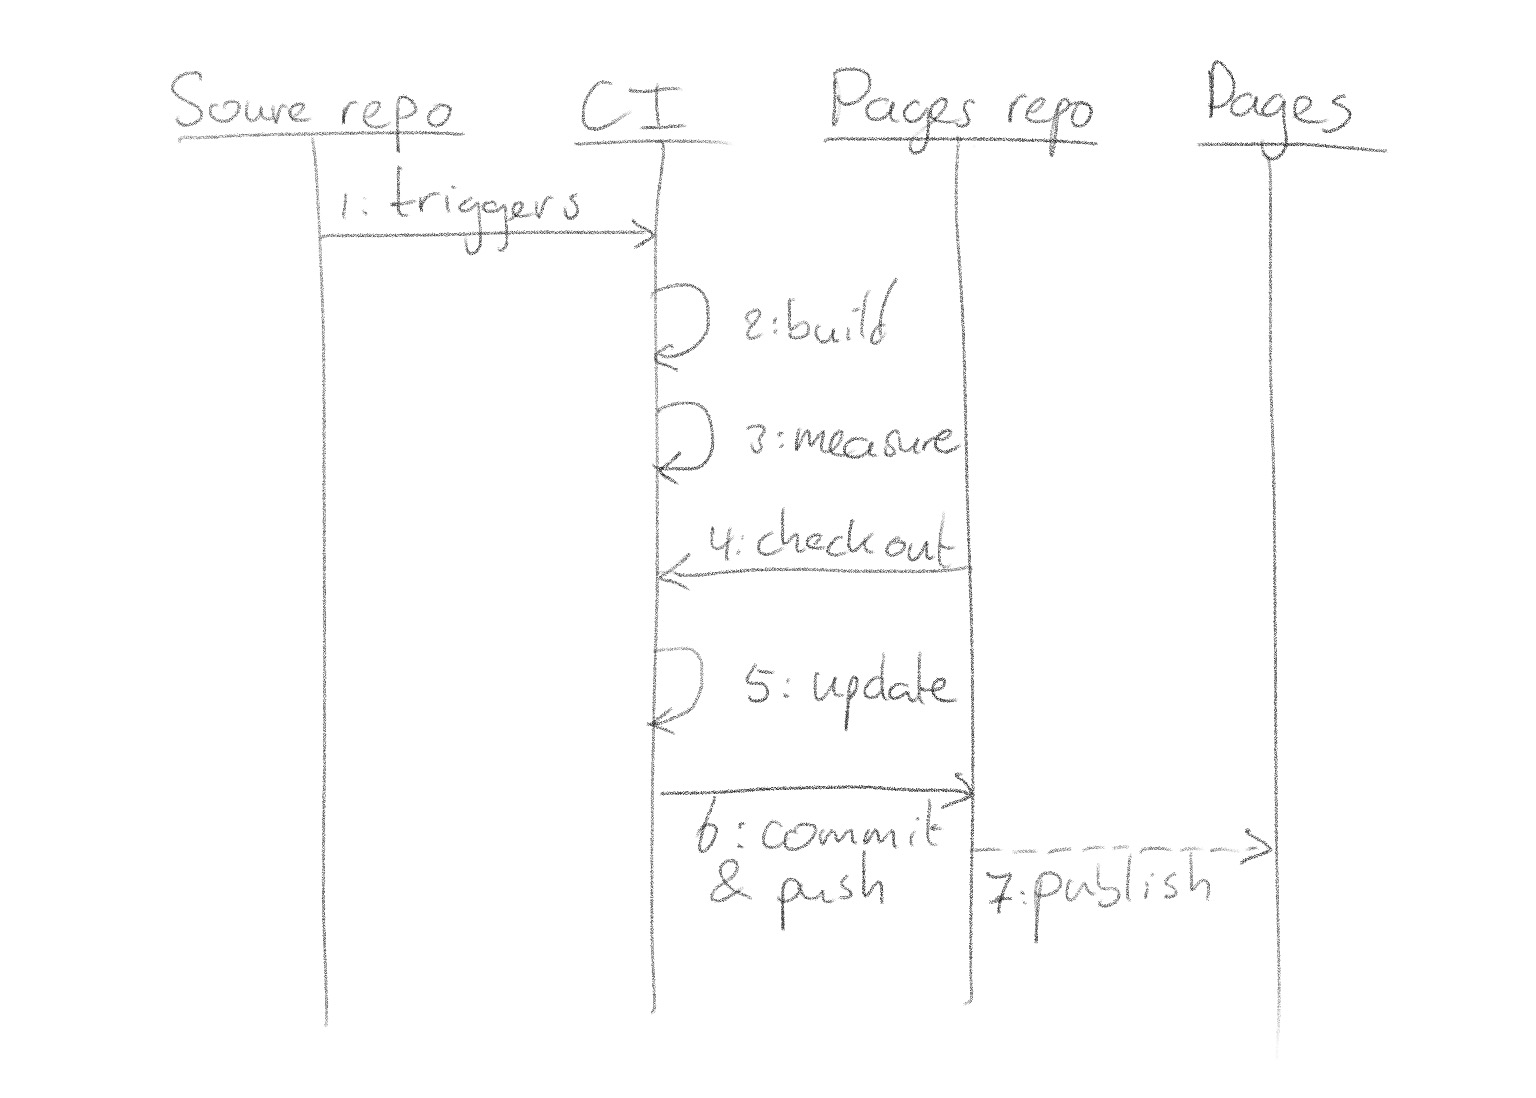 Source repo
CI
Pages repo
Pages
1: triggers
2: build
3: measure
4: checkout
5: update
6: commit
& push
7: publish